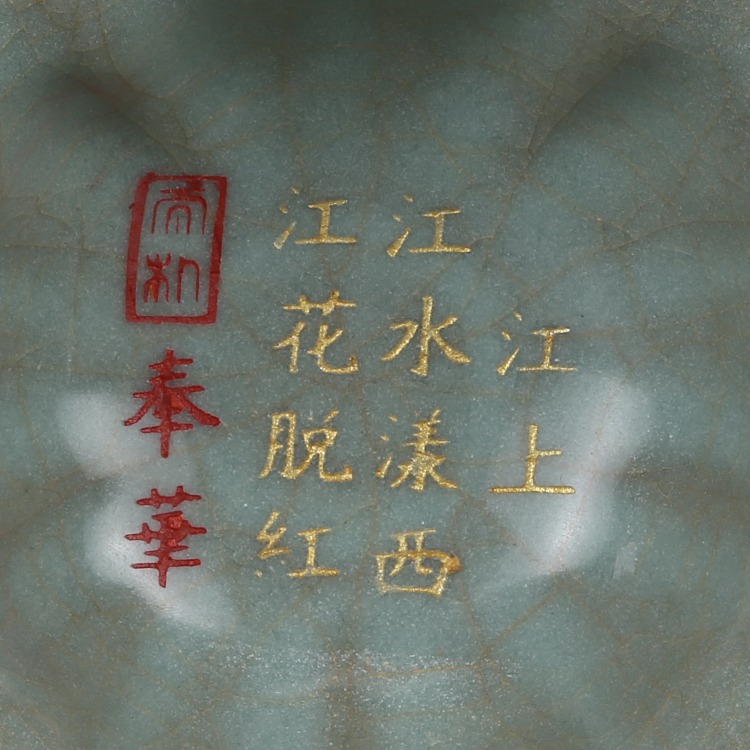 江上
江水漾西
江花脱红
奉華